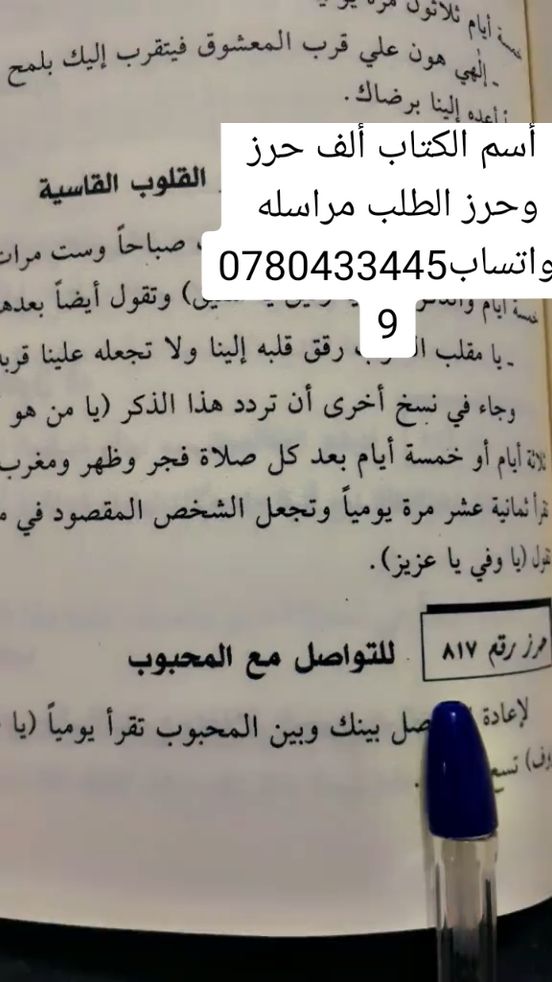 خمسة أيام ثلاثون مرة
ـ إلهي هون علي قرب المعشوق فيتقرب إليك بلمح
أعده إلينا برضاك.
أسم الكتاب ألف حرز
وحرز الطلب مراسله
واتساب0780433445
9
القلوب القاسية
صباحاً وست مرات
خمسة أيام وتقول أيضاً بعدها
ـ يا مقلب رقق قلبه إلينا ولا تجعله علينا
وجاء في نسخ أخرى أن تردد هذا الذكر (يا من هو
ثلاثة أيام أو خمسة أيام بعد كل صلاة فجر وظهر ومغرب
تقرأ ثمانية عشر مرة يومياً وتجعل الشخص المقصود في
تقول (يا وفي يا عزيز).
حرز رقم ٨١٧
للتواصل مع المحبوب
لإعادة بينك وبين المحبوب تقرأ يومياً (يا